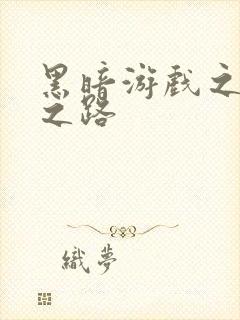 黑暗游戏之
之路
織夢